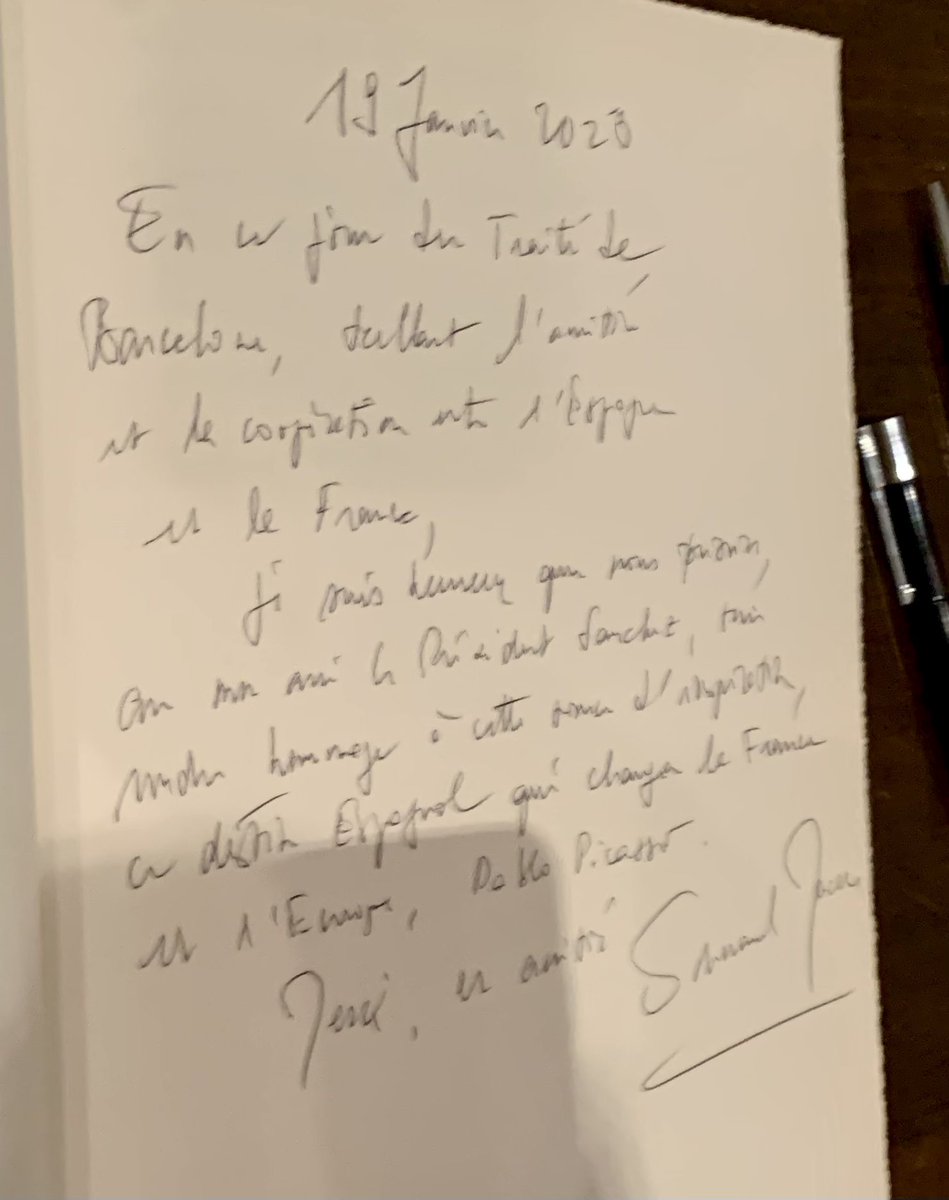 19 Janvier 2023
En ce jour du Traité de
Barcelone, scellant l'amitié
et la coopération entre l'Espagne
et la France,
Je suis heureux que nous puissions,
avec mon ami le Président Sanchez,
rendre hommage à cette source d'inspiration,
ce destin Espagnol qui changea la France
et l'Europe, Pablo Picasso.
Merci, en amitié Emmanuel Macron